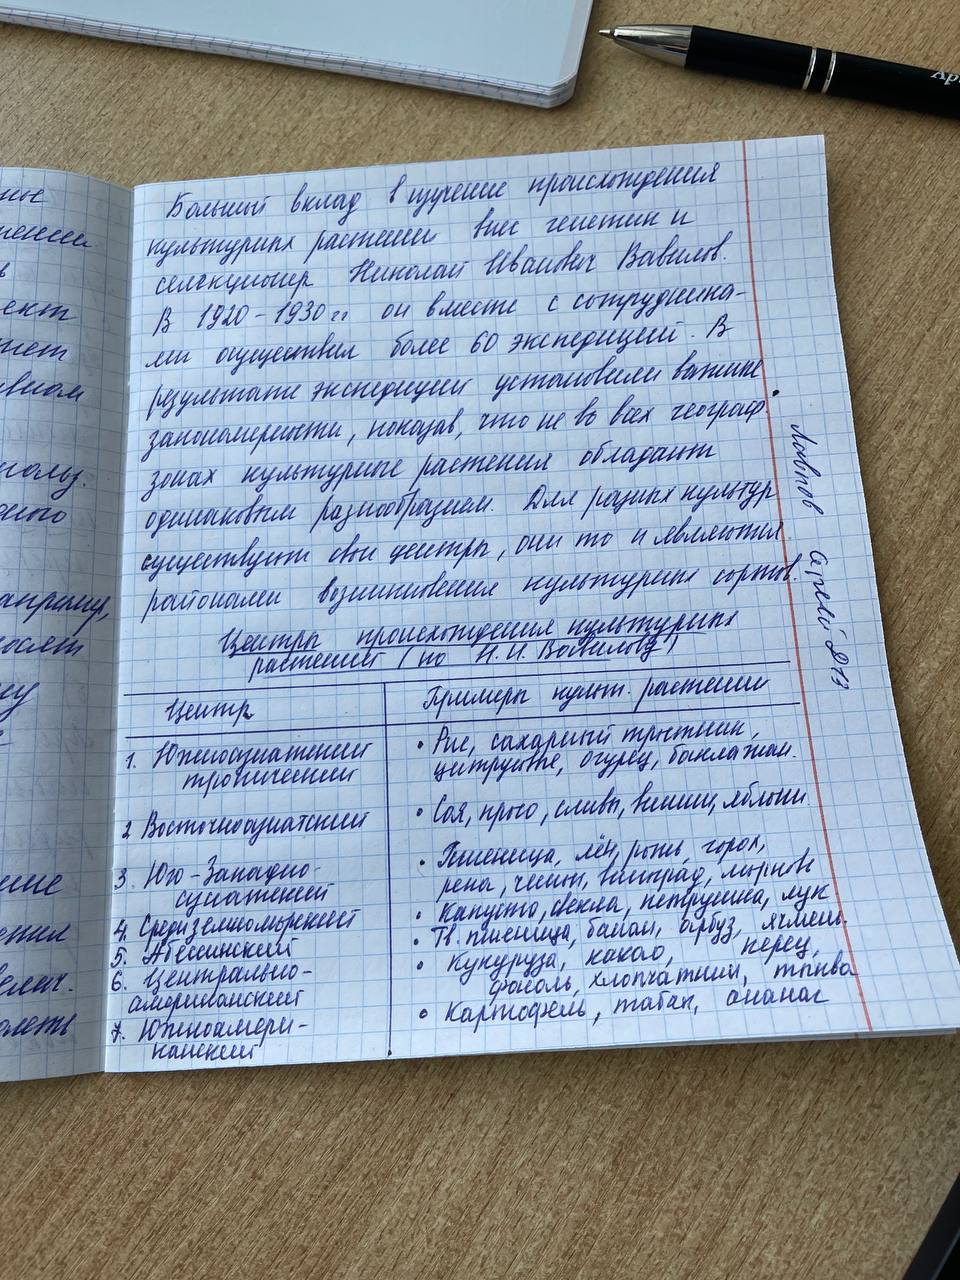 Большый вклад в изучение происхождения
культурных растений внес генетик и
селекционер Николай Иванович Вавилов.
В 1920-1930 гг он вместе с сотрудника-
ми осуществил более 60 экспедиций. В
результате экспедиций установили важные
закономерности, показав, что не во всех географ.
зонах культурные растения обладают
одинаковым разнообразием. Для разных культур
существуют свои центры, они то и являются
районами возникновения культурных сортов.
Центры происхождения культурных
растений (по Н.И. Вавилову)
Центр
Примеры культ. растений
1. Южноазиатский
тропический
• Рис, сахарный тростник,
цитрусовые, огурец, баклажан.
2 Восточноазиатский
• Соя, просо, сливы, вишни, яблони
3. Юго-Западно-
азиатский
• Пшеница, лён, рожь, горох,
репа, чеснок, виноград, морковь
4. Средиземноморский
• Капуста, свекла, петрушка, лук
5. Абессинский
• Тв. пшеница, банан, арбуз, ячмень
6. Центрально-
американский
• Кукуруза, какао, перец,
фасоль, хлопчатник, тыква
7. Южноамери-
канский
• Картофель, табак, ананас
Сергей 213
ные
ект
ивном
польз.
дного
например,
носят
ому
ение
Ар